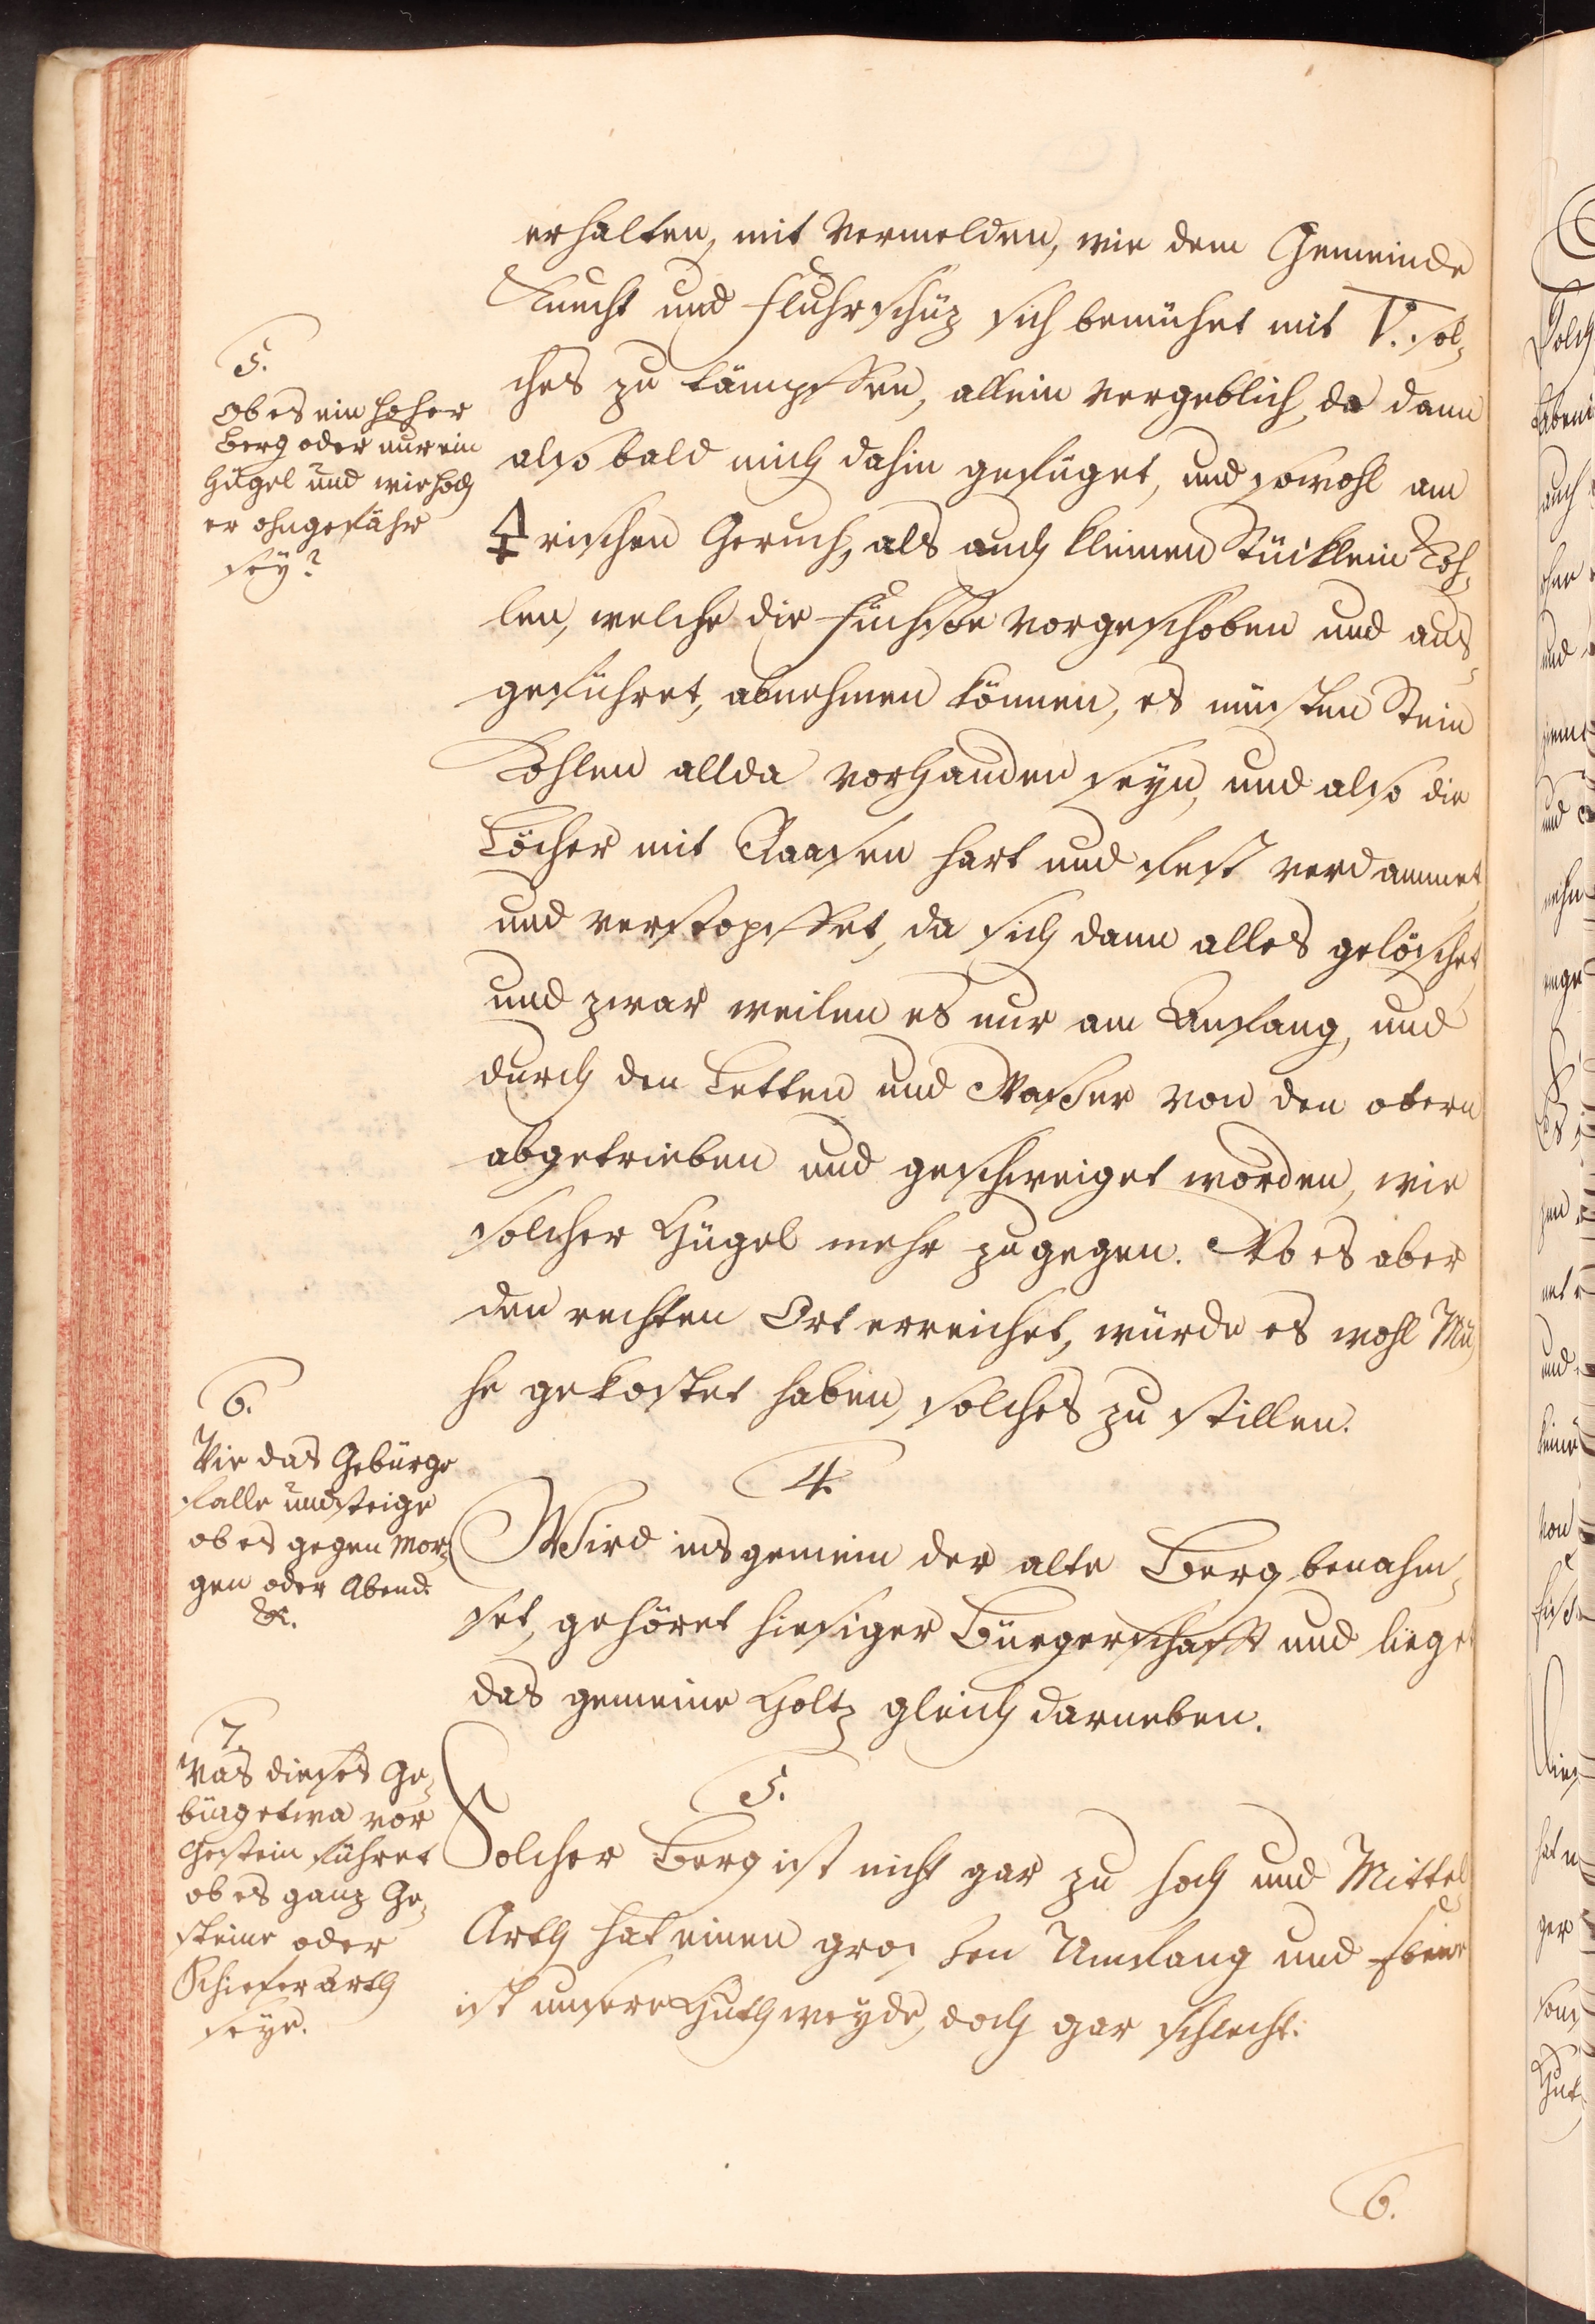 erhalten, mit Vermelden, wie dem Gemeinde
Knecht und Fluhrschüz sich bemühet mit ▽. sol-
ches zu dämpffen, allein vergeblich, da dann
also bald mich dahin gefüget, und sowohl am
🜍rischen Geruch, als auch kleinen Stücklein Koh-
len, welche die Füchse vorgeschoben und aus-
geführet, abnehmen können, es müsten Stein
Kohlen allda vorhanden seyn, und also die
Löcher mit Raasen hart und fest verdammet
und verstopffet, da sich dann alles gelöschet
und zwar weilen es nur am Anfang, und
durch den Letten und Wasser von den obern
abgetrieben und geschweiget worden, wie
solcher Hügel mehr zugegen. Wo es aber
den rechten Ort erreichet, würde es wohl Mü-
he gekostet haben, solches zu stillen.
4.
Wird insgemein der alte Berg benahm-
set, gehöret hiesiger Bürgerschafft und lieget
das gemeine Holtz gleich darneben.
5.
Solcher Berg ist nicht gar zu hoch und Mittel
Arth hat einen grossen Umfang und
ist unsere Huthweyde, doch gar schlecht.
6.
5.
Ob es ein hoher
Berg oder nur ein
Hügel und wie hoch
er ohngefähr
sey?
6.
Wie das Gebürge
falle und steige
ob es gegen Mor-
gen oder Abend
&c.
7.
Was dieses Ge-
bürg etwa vor
Gestein führet
ob es ganz Ge-
steine oder
Schiefer arth
seye.